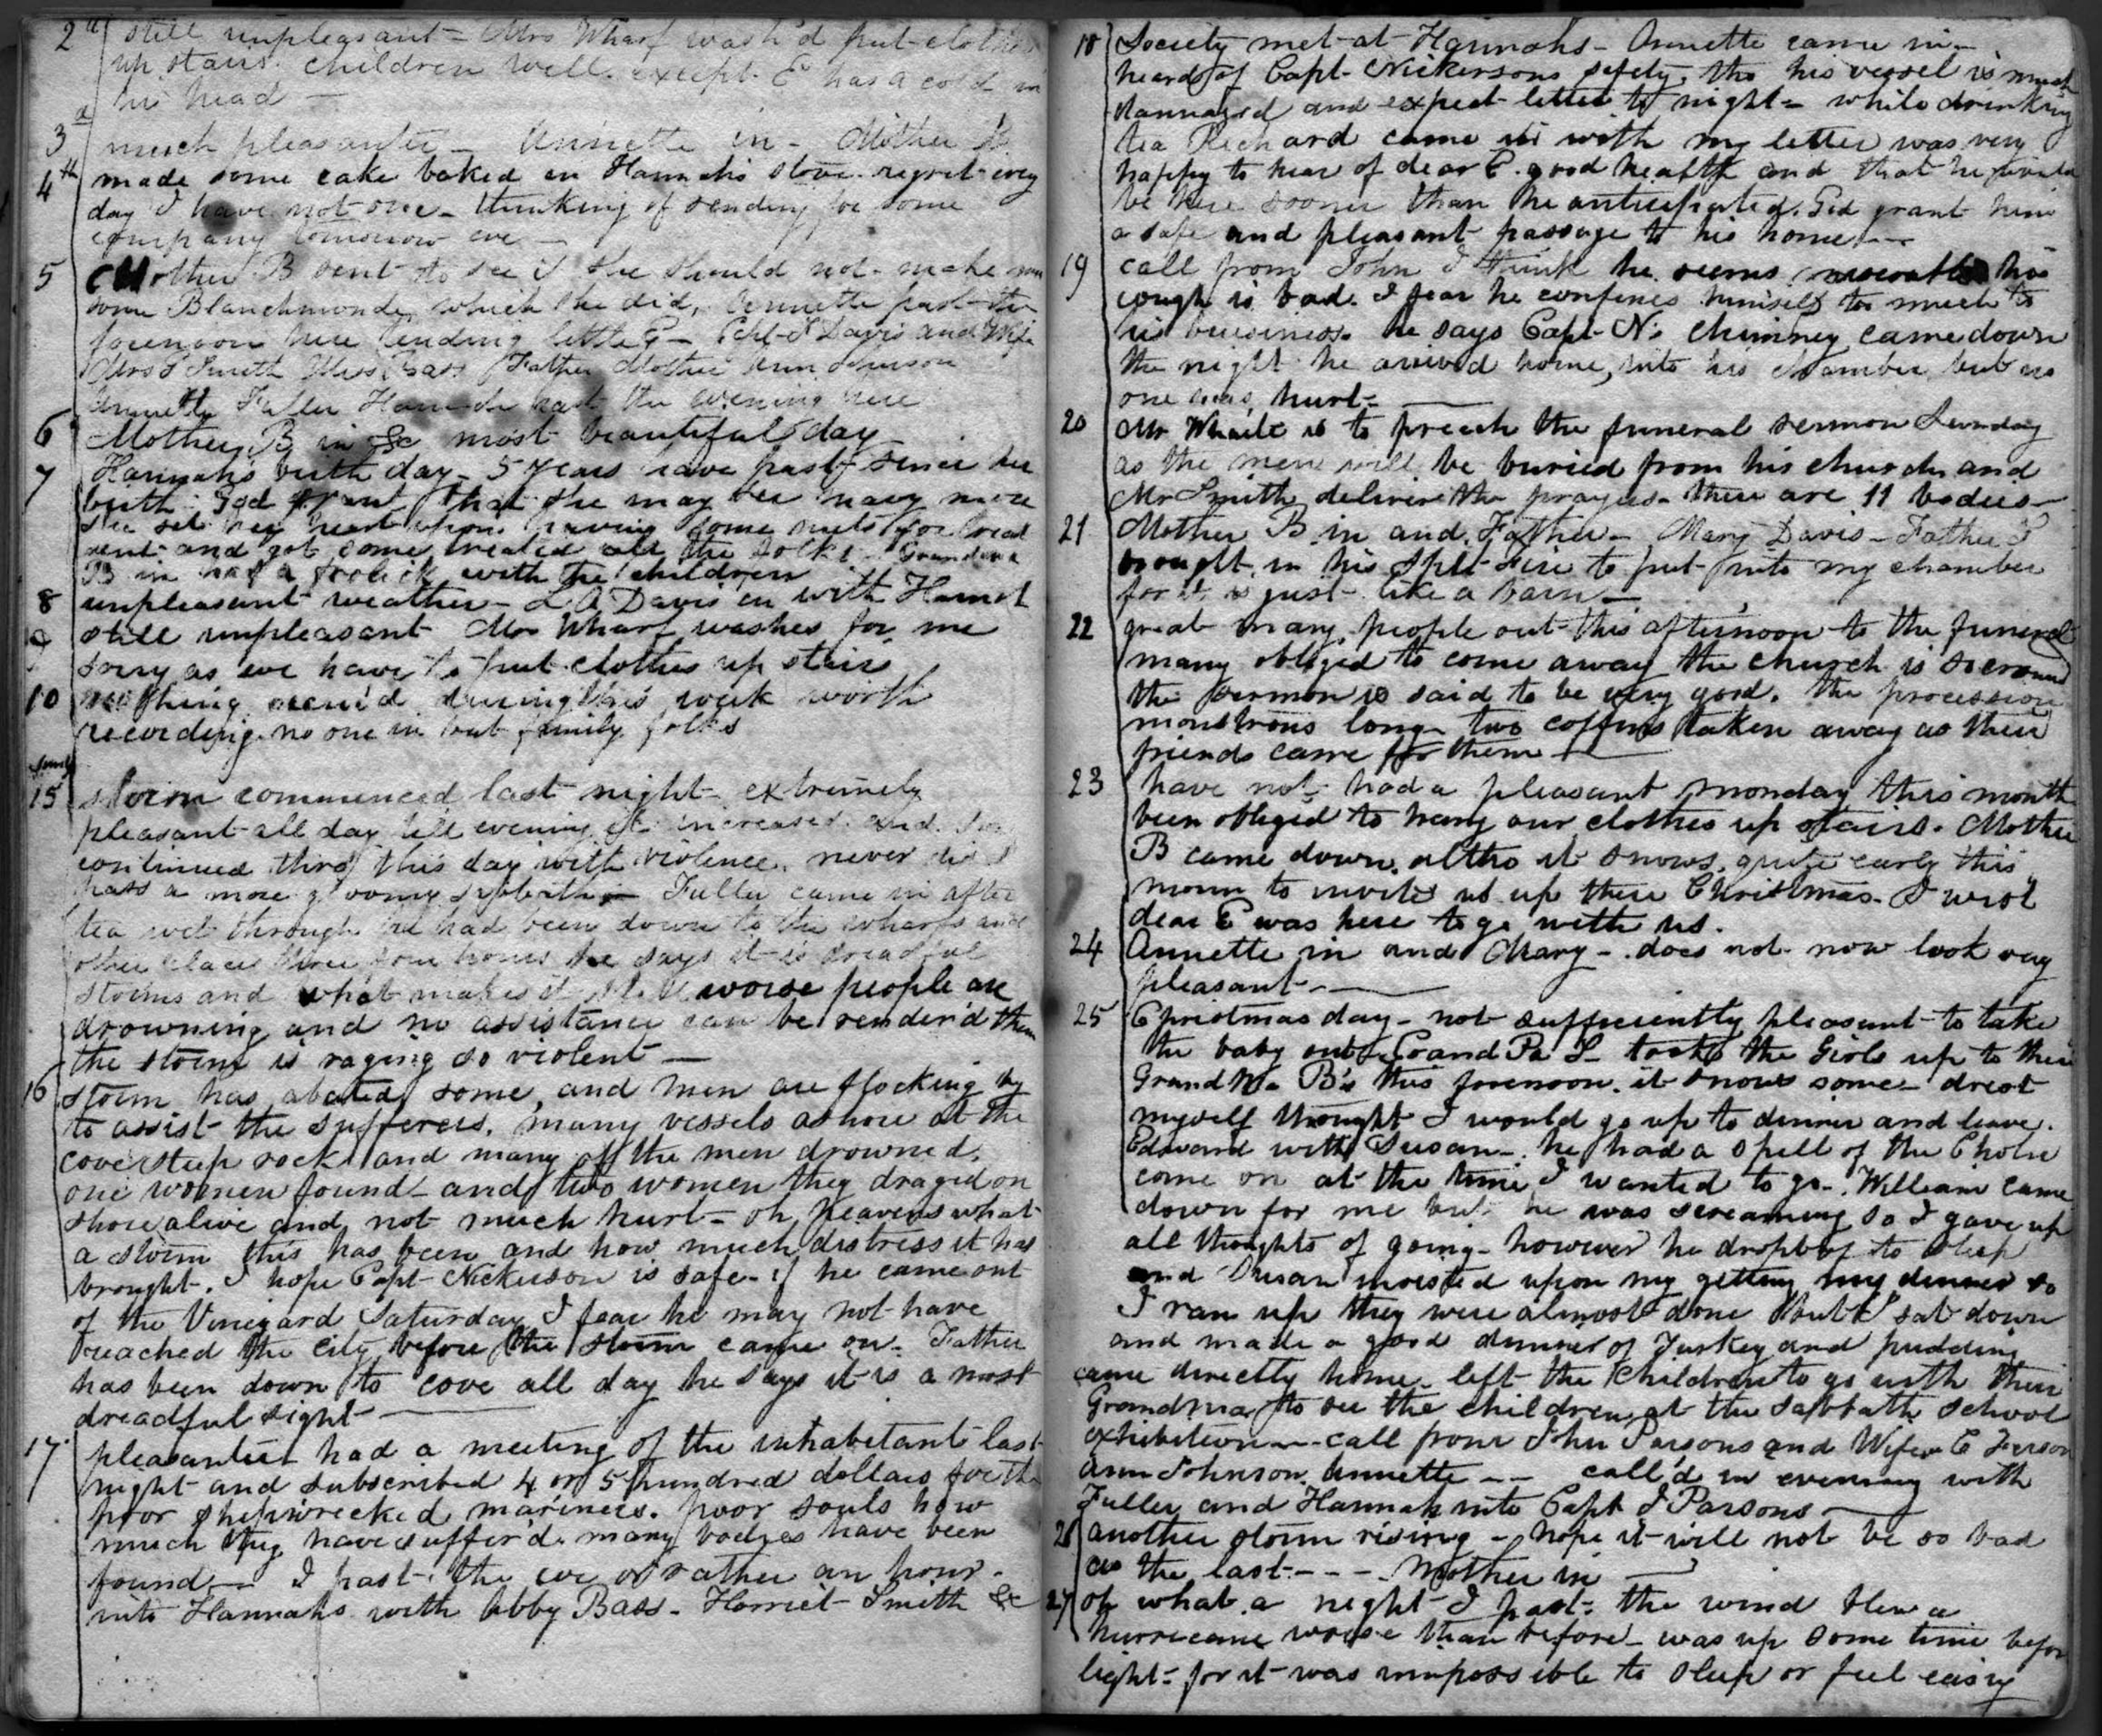 2d still unpleasant - Mrs Wharf wash'd put clothes
up stairs. children well. except E has a cold in
his head -
3d much pleasanter - Annette in - Mother B
4th made some cake baked in Hannahs stove. regret every
day I have not one - thinking of sending for some
company tomorrow eve -
5 Mother B sent to see if she should not make me
some Blanchmonde, which she did, Annette past the
forenoon here tending little E - Capt Davis and Wife
Mrs S Smith Miss Bass Father Mother Ann Johnson
Annette Fuller Hannah past the evening here
6 Mother B in &c most beautiful day
7 Hannahs birth day - 5 years have past since her
birth - God grant that she may see many more
she set her heart upon having some nuts for
sent and got some treated all the folks. Grandma
B in had a frolick with the children
8 unpleasant weather - L A Davis in with Harriet
9 still unpleasant Mrs Wharf washes for me
sorry as we have to put clothes up stairs
10 nothing occur'd during this week worth
recording. no one in but family folks
Sunday
15 storm commenced last night - extremely
pleasant all day till evening it increased and has
continued thro this day with violence. never did I
pass a more gloomy sabbath - Fuller came in after
tea wet through he had been down to the wharfs and
other places three four hours he says it is dreadful
storms and what makes it still worse people are
drowning and no assistance can be render'd them
the storm is raging so violent -
16 storm has abated some, and men are flocking by
to assist the sufferers. many vessels ashore at the
cove steep rocks and many of the men drowned.
one women found - and two women they draged on
shore alive and not much hurt - oh heavens what
a storm this has been and how much distress it has
brought. I hope Capt Nickerson is safe - if he came out
of the Vineyard Saturday I fear he may not have
reached the City before the storm came on - Father
has been down to cove all day he says it is a most
dreadful sight -
17 pleasanter had a meeting of the inhabitants last
night and subscribed 4 or 5 hundred dollars for the
poor shipwrecked mariners. poor souls how
much they have suffer'd. many bodies have been
found - I past the eve or rather an hour -
into Hannahs with Abby Bass - Harriet Smith &c
18 Society met at Hannahs - Annette came in -
heard of Capt Nickersons safety, tho his vessel is much
dammaged and expect letter to night - while drinking
tea Richard came in with my letter was very
happy to hear of dear E. good health and that he would
be here sooner than he anticipated. God grant him
a safe and pleasant passage to his home -
19 call from John I think he seems miserable his
cough is bad. I fear he confines himself too much to
his buusiness. he says Capt N's chimney came down
the night he arrived home, into his chamber but no
one was hurt -
20 Mr Waite is to preach the funeral sermon Sunday
as the men will be buried from his church and
Mr Smith deliver the prayers - there are 11 bodies -
21 Mother B. in and Father - Mary Davis - Father S
brought in his to put into my chamber
for it is just like a barn -
22 great many people out this afternoon to the funeral
many obliged to come away the church is so crowed
the sermon is said to be very good. the procession
monstrous long - two coffins taken away as their
friends came for them -
23 have not had a pleasant monday this month
been obliged to hang our clothes up stairs. Mother
B came down, altho it snows, quite early this
morn to invite us up there Christmas - I wish
dear E was here to go with us.
24 Annette in and Mary - does not now look very
pleasant -
25 Christmas day - not sufficiently pleasant to take
the baby out - Grand Pa S - took the Girls up to their
Grand Ma B's this forenoon. it snows some - drest
myself thought I would go up to dinner and leave.
Edward with Susan - he had a spell of the Cholic
come on at the time I wanted to go - William came
down for me but he was screaming so I gave up
all thoughts of going - however he dropt of to sleep
and Susan insisted upon my getting my dinner so
I ran up they were almost done but I sat down
and made a good dinner of Turkey and pudding
came directly home - left the Children to go with their
Grandma to see the children at the sabbath school
exhibition - call from John Parsons and Wife
Ann Johnson Annette - - call'd in evening with
Fuller and Hannah into Capt J Parsons -
26 another storm rising - hope it will not be so bad
as the last - - - Mother in
27 oh what a night I past. the wind blew a
hurricane worse than before - was up some time before
light - for it was impossible to sleep or feel easy